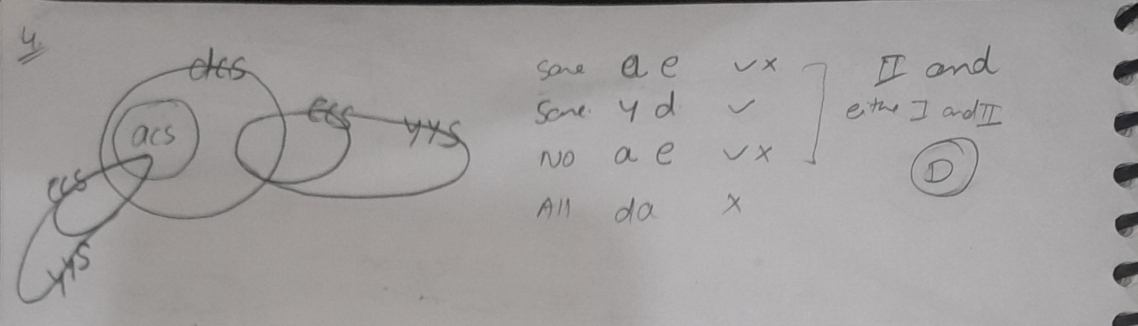 4
dcs
acs
ecs
yys
ecs
yys
Some a e ✓×
Some y d ✓
No a e ✓×
All da ×
II and
either I and II
D